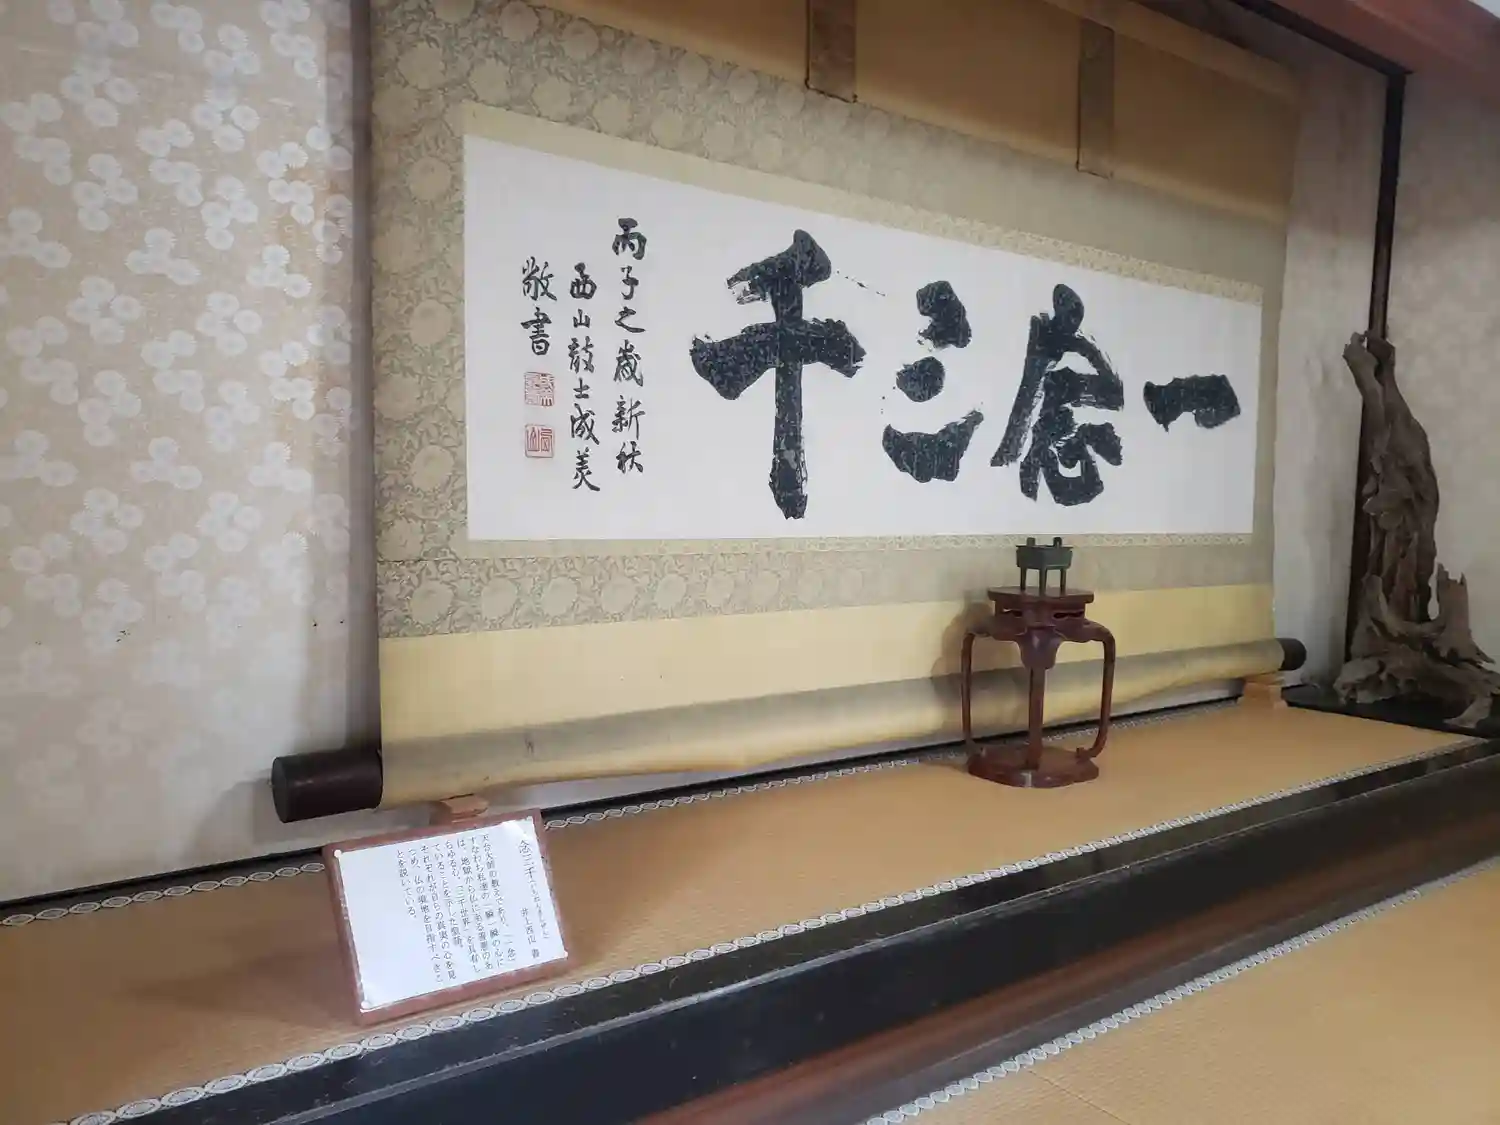 一念三千
丙子之歳新秋
西山敲士成美
敬書
念三千(いちねんさんぜん)
井上西山 書
天台大師の教えであり、「一念」
すなわち私達の一瞬一瞬の心に
は、地獄から仏にある善悪のあ
らゆる心、「三千世界」を具有し
ていることを示した聖語。
それぞれが自らの真実の心を見
つめ、仏の境地を目指すべきこ
とを説いている。